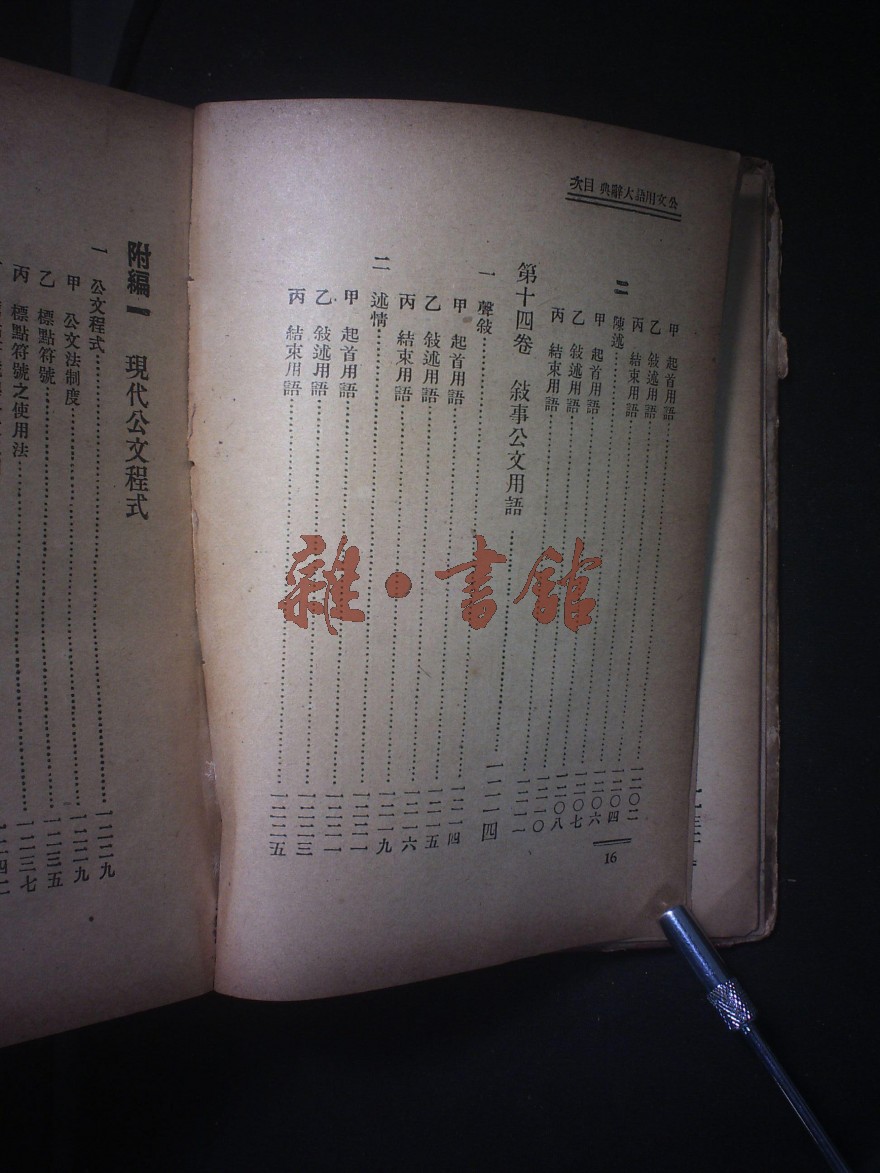 公文用語大辭典 目次
甲 起首用語……一二〇二
乙 敍述用語……一二〇四
丙 結束用語……一二〇六
二 陳述……一二〇七
甲 起首用語……一二〇八
乙 敍述用語……一二一〇
丙 結束用語……一二一一
第十四卷 敍事公文用語……一二一四
一 聲敍……一二一四
甲 起首用語……一二一五
乙 敍述用語……一二一六
丙 結束用語……一二一九
二 述情……一二二一
甲 起首用語……一二二一
乙 敍述用語……一二二三
丙 結束用語……一二二五
16
雜·書館
附編一 現代公文程式
一 公文程式……一二二九
甲 公文法制度……一二二九
乙 標點符號……一二三五
丙 標點符號之使用法……一二三七